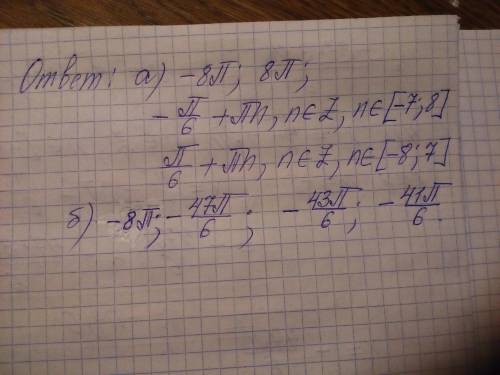 Ответ: а) -8π; 8π;
-π/6 + πn, n∈Z, n∈[-7; 8]
π/6 + πn, n∈Z, n∈[-8; 7]
б) -8π; -47π/6; -43π/6; -41π/6.